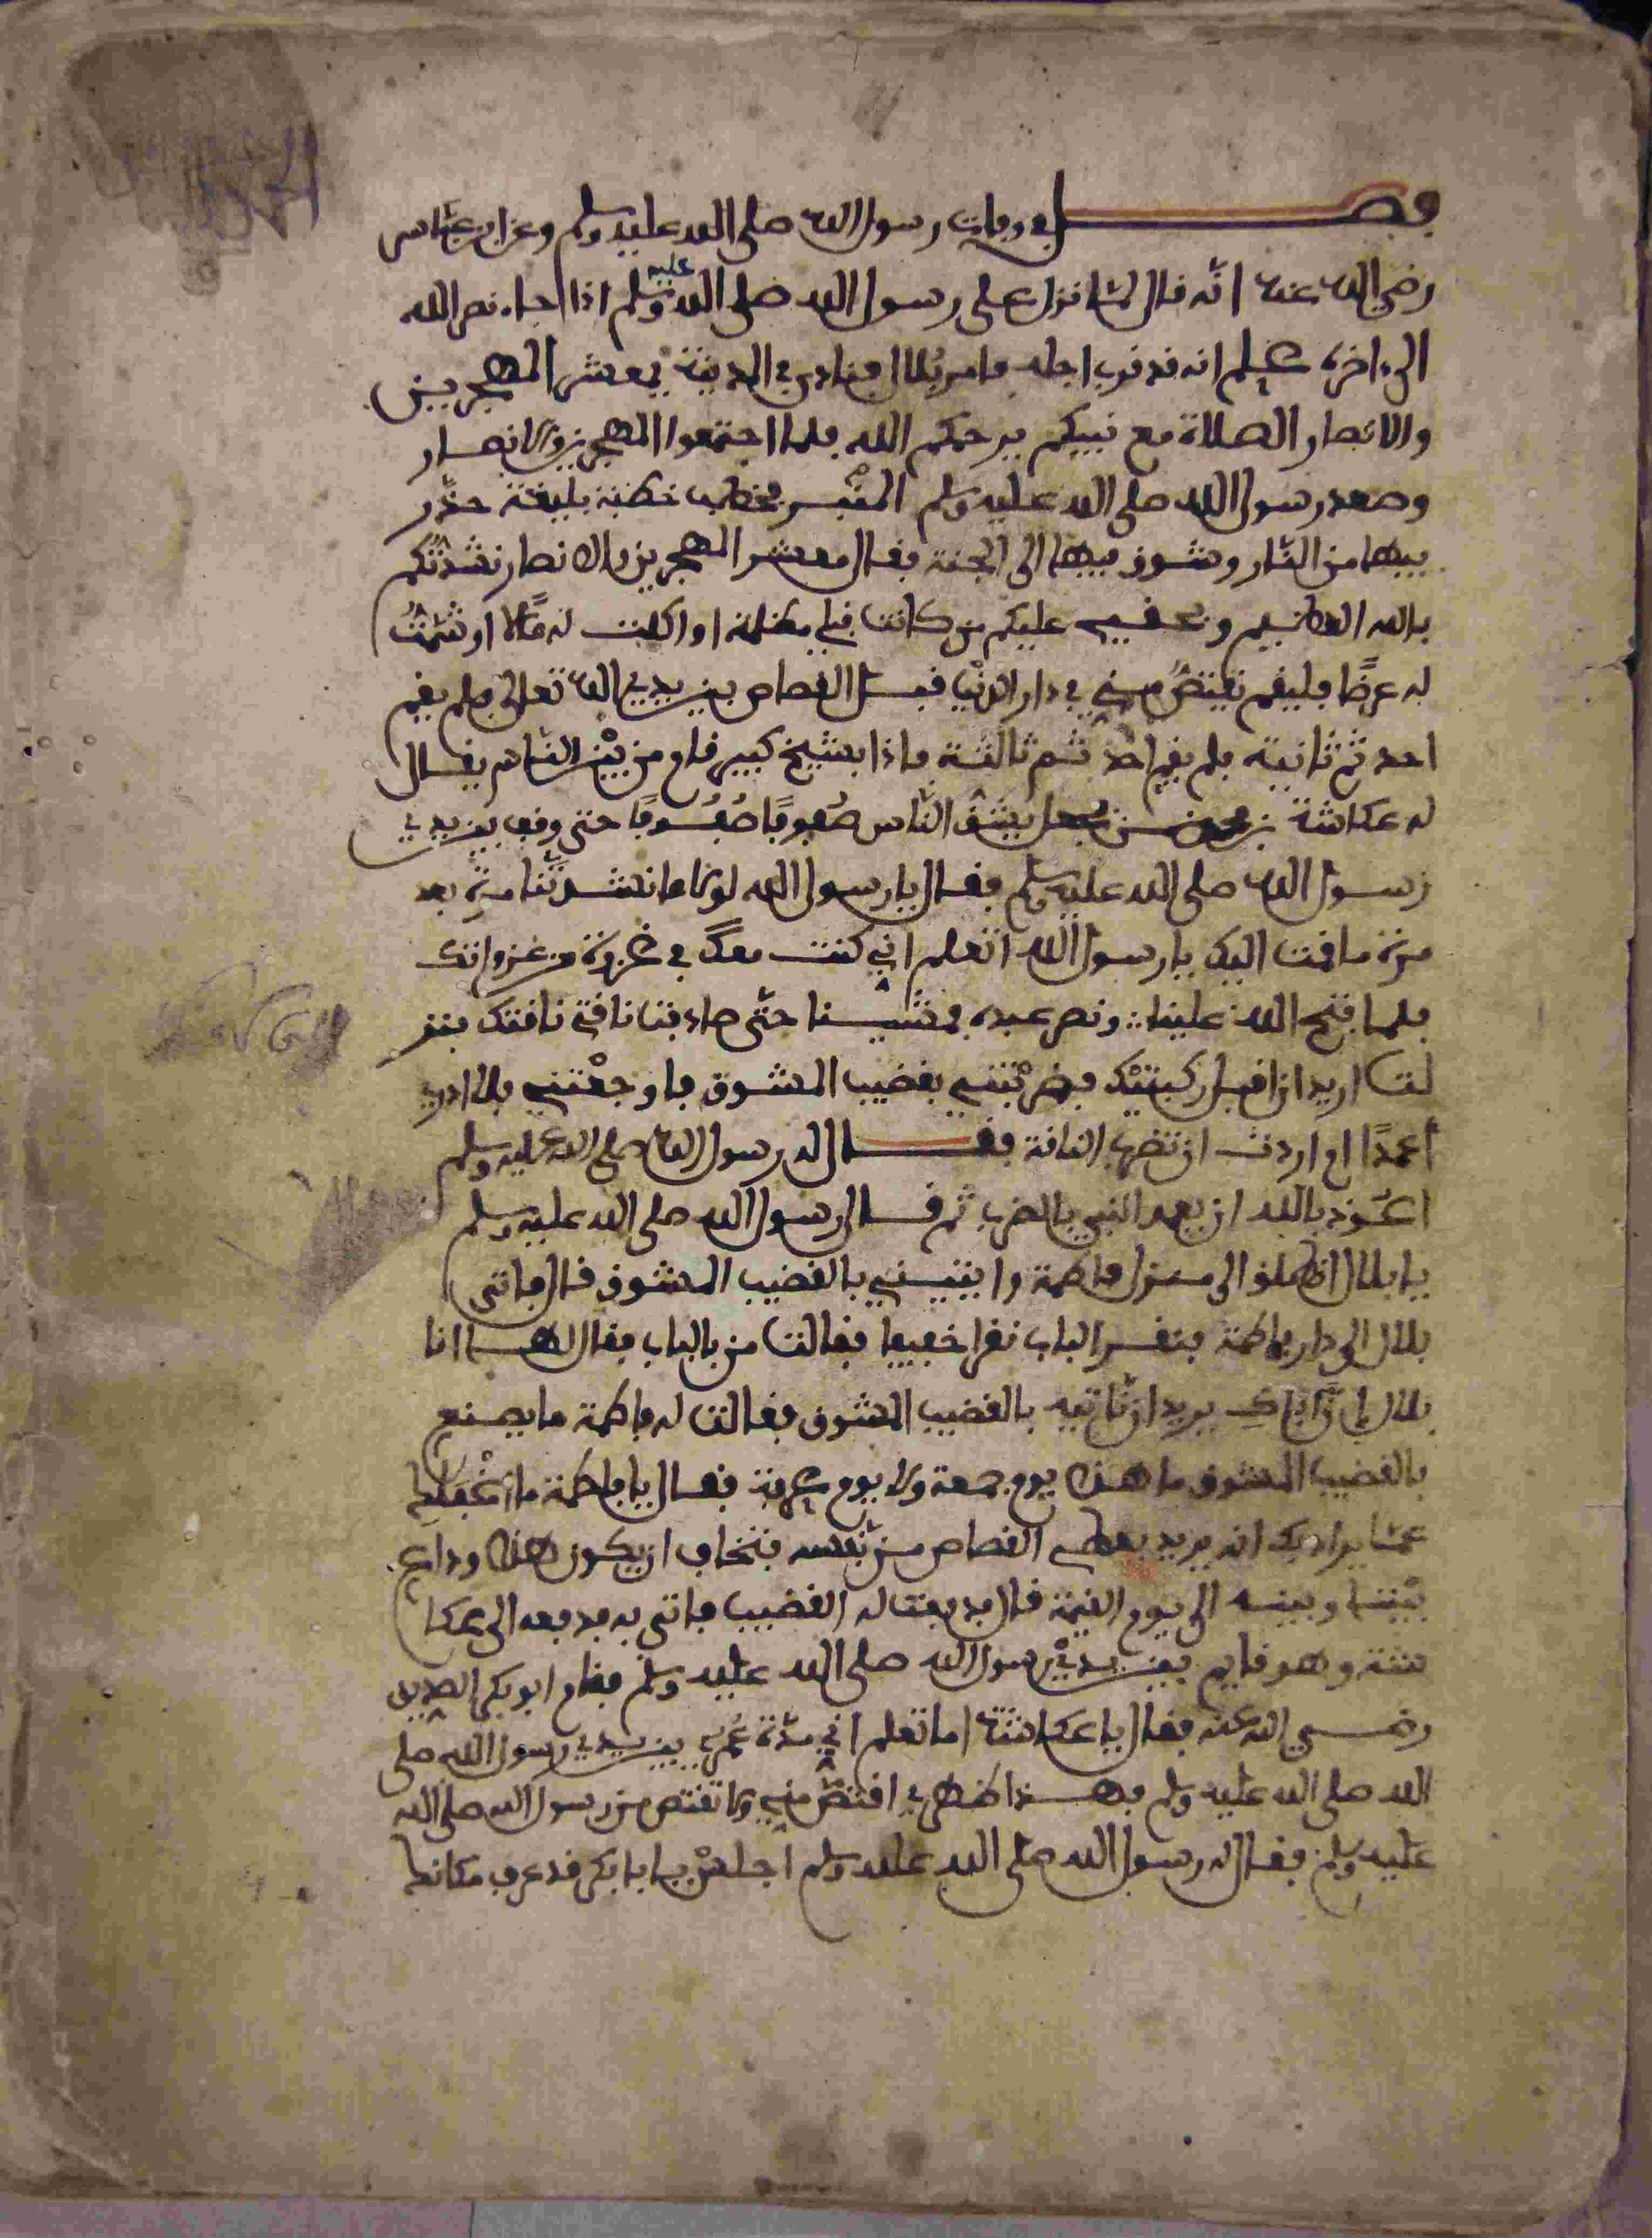 فصل في وفات رسول الله صلى الله عليه وسلم وعن ابن عباس
رضي الله عنه انه قال لما نزل على رسول الله صلى الله عليه وسلم اذا جاء نصر الله
الى ءاخره علم انه قد قرب اجله فامر بلالا فنادى في المدينة يمعشر المهجرين
والانصار الصلاة مع نبيكم يرحمكم الله فلما اجتمعوا المهجرين والانصار
وصعد رسول الله صلى الله عليه وسلم المنبر فخطب خطبة بليغة حذر
فيها من النار وشوق فيها الى الجنة فقال معشر المهجرين والانصار نشدتكم
بالله العظيم وبحقي عليكم من كانت قبلي مظلمة او اكلت له مالا او شتمت
له عرضا فليقم نقتص مني في دار الدنيا قبل القصاص بين يدي الله تعالى فلم يقم
احد ثم ثانية فلم يقم احد ثم ثالثة فاذا بشيخ كبير قام من بين الناس يقال
له عكاشة بن محصن فجعل يشق الناس صفوفا صفوفا حتى وقف بين يدي
رسول الله صلى الله عليه وسلم فقال يا رسول الله لولا ما نشدتنا مرة بعد
مرة ما قمت اليك يا رسول الله اتعلم اني كنت معك في غزوة من غزواتك
فلما فتح الله علينا ونصر عبده فمشينا حتى صادفنا ناقتي ناقتك فنز
لت اريد ان اقبل ركبتيك فضربتني بقضيب الممشوق فاوجعتني فلا ادري
أعمدا ام اردت ان تضرب الناقة فقال له رسول الله صلى الله عليه وسلم
اعوذ بالله ان يعمد النبي بالضرب ثم قال رسول الله صلى الله عليه وسلم
يا بلال انطلق الى منزل فاطمة وايتيني بالقضيب الممشوق قال فاتى
بلال الى دار فاطمة فنقر الباب نقرا خفيفا فقالت من بالباب فقال لها انا
بلال ان اباك يريد ان تاتيه بالقضيب الممشوق فقالت له فاطمة ما يصنع
بالقضيب الممشوق ما هذا يوم جمعة ولا يوم عرفة فقال يا فاطمة ما اغفلك
عما يراد بك انه يريد يعطي القصاص من نفسه فنخاف ان يكون هذا وداع
بيننا وبينه الى يوم القيمة قال فدفعت له القضيب فاتى به فدفعه الى عكا
شة وهو قايم بين يدي رسول الله صلى الله عليه وسلم فقام ابو بكر الصديق
رضي الله عنه فقال يا عكاشة اما تعلم اني مدة عمري بين يدي رسول الله صلى
الله صلى الله عليه وسلم فهذا ظهري اقتص مني ولا تقتص من رسول الله صلى الله
عليه وسلم فقال له رسول الله صلى الله عليه وسلم اجلس يا ابا بكر قد عرف مكانك